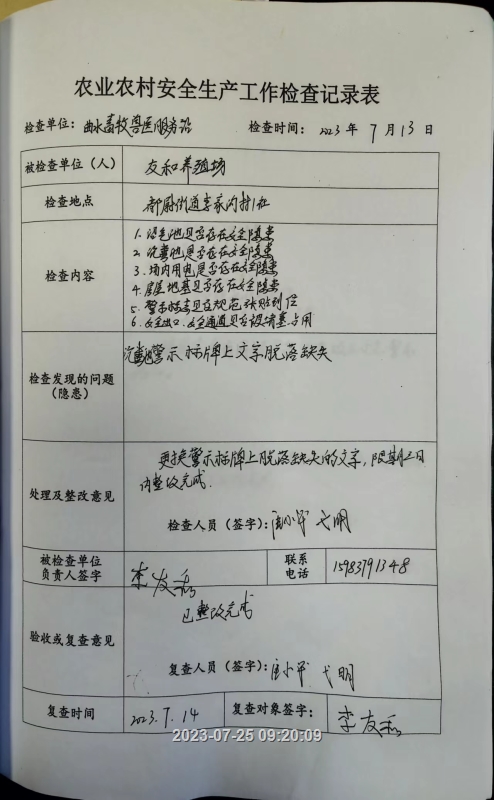 农业农村安全生产工作检查记录表
检查单位：曲水畜牧兽医服务站 检查时间：2023 年 7 月 13 日
被检查单位（人） 友和养殖场
检查地点 都尉街道李家沟村1社
检查内容
1. 沼气池是否存在安全隐患
2. 沉粪池是否存在安全隐患
3. 场内用电是否存在安全隐患
4. 房屋地基是否存在安全隐患
5. 警示标志是否规范张贴到位
6. 安全出口、安全通道是否被堵塞占用
检查发现的问题
（隐患）
沉粪池警示标牌上文字脱落缺失
处理及整改意见
更换警示标牌上脱落缺失的文字，限期三日
内整改完成.
检查人员（签字）： 唐小军 弋明
被检查单位
负责人签字
李友和
联系
电话
15983791348
验收或复查意见
已整改完成
复查人员（签字）： 唐小军 弋明
复查时间 2023.7.14 复查对象签字： 李友和
2023-07-25 09:20:09